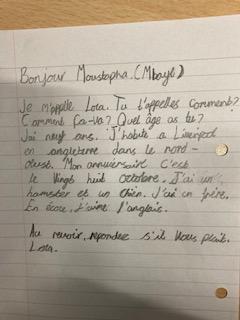 Bonjour Moustapha.(Mbaye)
Je m'appelle Lola. Tu t'appelles comment?
Comment ça-va? Quel âge as tu?
J'ai neuf ans. J'habite a Liverpool
en angleterre dans le nord-
ouest. Mon anniversaire c'est
le vingt huit octobre. J'ai un
hamster et un chien. J'ai un frère.
En école, j'aime l'anglais.
Au revoir, repondez s'il vous plait.
Lola.